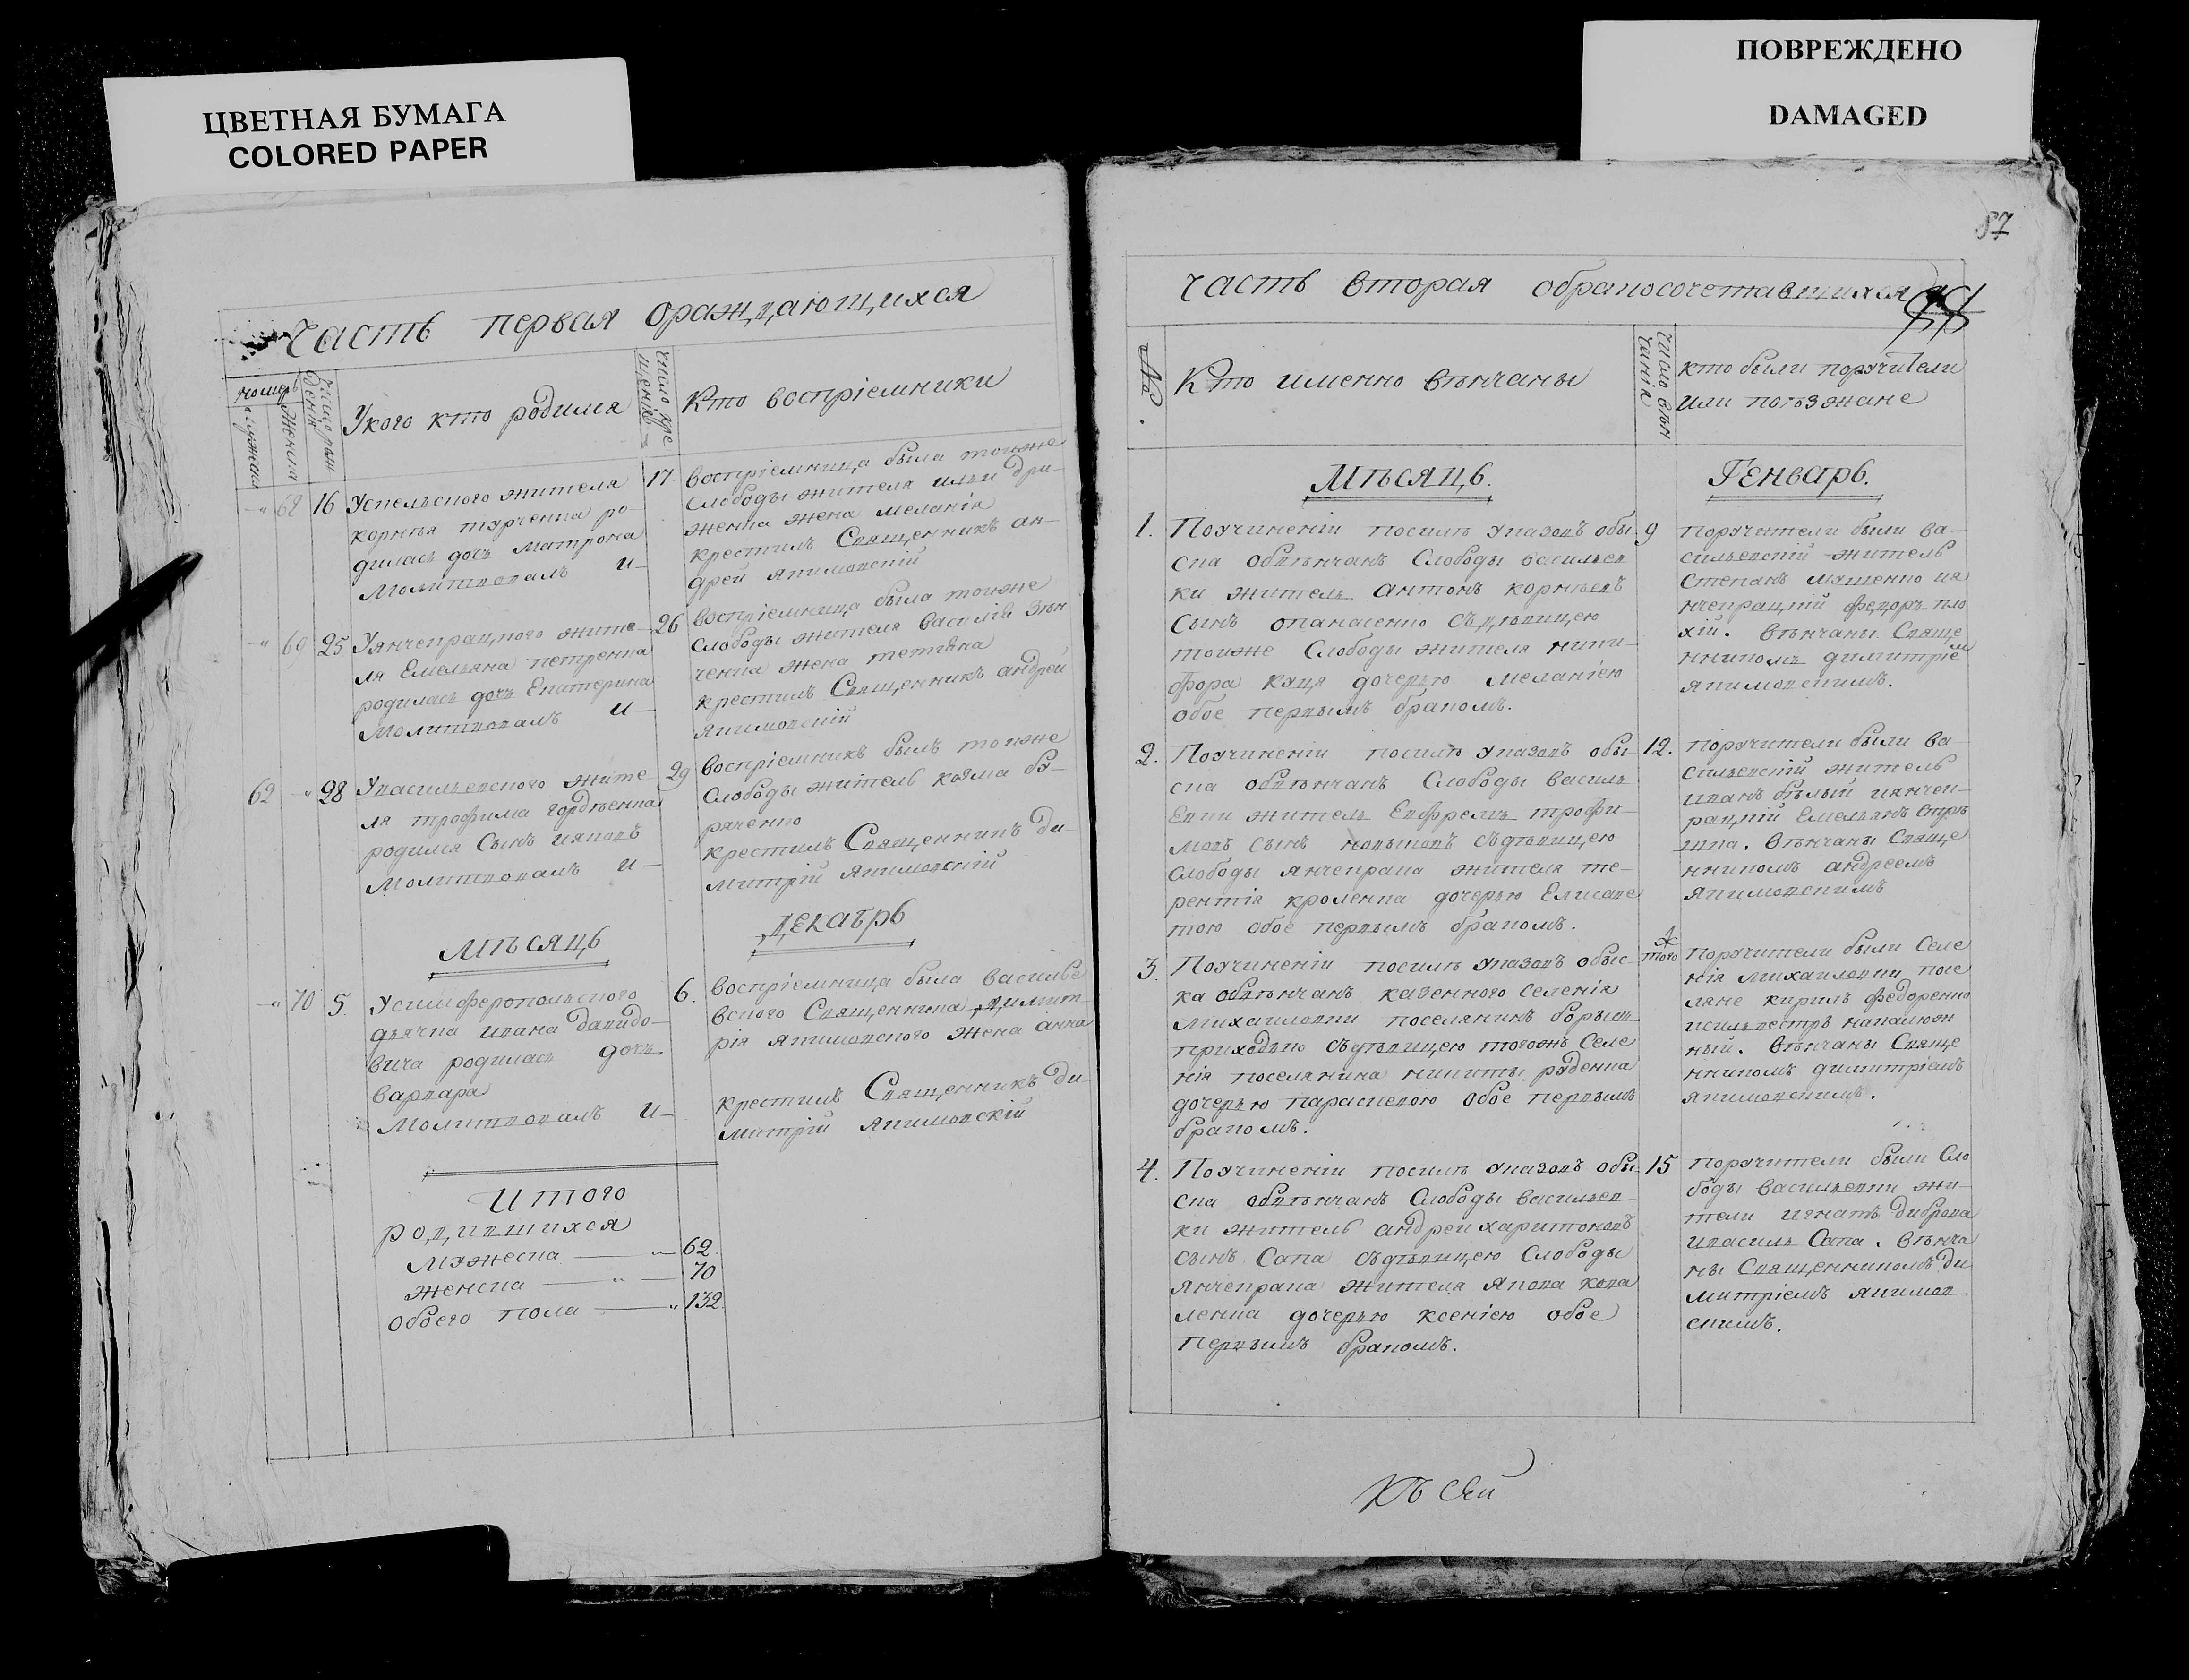 ЦВЕТНАЯ БУМАГА
COLORED PAPER
ПОВРЕЖДЕНО
DAMAGED
87
Часть первая ораждающихся
номеръ
мужеска
Женска
число рож
денія
Укого кто родился
число кре
щенія
Кто воспріемники
68 16 Успельского жителя
корнѣя турченка ро-
дилась дочь Матрона
Молитвовалъ и-
17 воспріемница была тоиже
Слободы жителя ильи
женка жена меланія
крестилъ Священникъ ан-
дрей якимовскій
69 25 Уянчекрацкого жите-
ля Емельяна петренка
родилась дочь Екатерина
Молитвовалъ и-
26 воспріемница была тоиже
Слободы жителя василія Зен
ченка жена
крестилъ Священникъ андрей
якимовскій
62 28 Увасильевского жите-
ля трофима гордѣенка
родился Сынъ ияковъ
Молитвовалъ и-
29 воспріемникъ былъ тоиже
Слободы житель козма бу-
ряченко
крестилъ Священникъ ди-
митрій якимовскій
Мѣсяцъ
декабрь
70 5. Усимферопольского
дьячка ивана давидо-
вича родилась дочь
варвара
Молитвовалъ и-
6. воспріемница была василье
вского Священника димит
рія якимовского жена анна
крестилъ Священникъ ди-
митрій якимовскій
Итого
родившихся
мужеска 62.
женска 70
обоего пола 132.
часть вторая обракосочетавшихся
№.
Кто именно вѣнчаны
число вѣн
чанія
кто были поручители
или поѣзжане
Мѣсяцъ.
Генварь.
1. Поучиненіи посилѣ указовъ обы-
ска обвѣнчанъ Слободы васильев
ки житель антонъ корнѣевъ
Сынъ опанасенко съдѣвицею
тоиже Слободы жителя ники-
фора куця дочерью меланіею
обое первымъ бракомъ.
9 поручители были ва-
сильевскій житель
Степанъ ия
нчекрацкій федоръ пло
хій. вѣнчаны Свяще
нникомъ димитріе
якимовскимъ.
2. Поучиненіи посилѣ указовъ обы-
ска обвѣнчанъ Слободы василь
евки житель Евфремъ трофи-
мовъ сынъ съдѣвицею
слободы янчекрака жителя те-
рентія кроленка дочерью Елисаве
тою обое первымъ бракомъ.
12. поручители были ва-
сильевскій житель
иванъ бѣлый иянчек-
рацкій Емельянъ
вѣнчаны Свяще
нникомъ андреемъ
якимовскимъ
3. Поучиненіи посилѣ указовъ обыс-
ка обвѣнчанъ казенного селенія
Михаиловки поселянинъ борысъ
приходько съдѣвицею тогожъ Селе
нія поселянина никиты руденка
дочерью параскевою обое первымъ
бракомъ.
того поручители были Селе
нія михаиловки посе
ляне кирилъ федоренко
исильвестръ
ный. вѣнчаны Свяще
нникомъ димитріемъ
якимовскимъ.
4. Поучиненіи посилѣ указовъ обы-
ска обвѣнчанъ Слободы васильев-
ки житель андрей харитоновъ
сынъ Сапа съдѣвицею Слободы
янчекрака жителя якова кова
ленка дочерью ксеніею обое
первымъ бракомъ.
15 поручители были Сло
боды васильевки жи-
тели игнатъ диброва
ивасиль Сапа. вѣнча
ны Священникомъ ди
митріемъ якимов
скимъ.
Къ сей